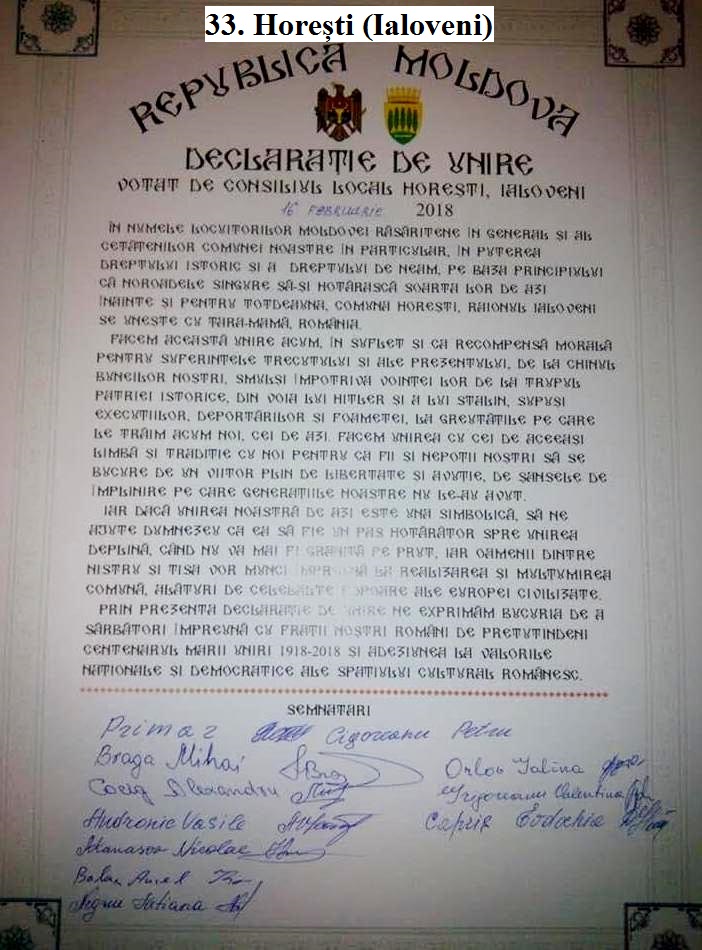 33. Horești (Ialoveni)
REPUBLICA MOLDOVA
DECLARAȚIE DE UNIRE
VOTAT DE CONSILIUL LOCAL HOREȘTI, IALOVENI
16 FEBRUARIE 2018
ÎN NUMELE LOCUITORILOR MOLDOVEI RĂSĂRITENE ÎN GENERAL ȘI AL
CETĂȚENILOR COMUNEI NOASTRE ÎN PARTICULAR, ÎN PUTEREA
DREPTULUI ISTORIC ȘI A DREPTULUI DE NEAM, PE BAZA PRINCIPIULUI
CĂ NOROADELE SINGURE SĂ-ȘI HOTĂRASCĂ SOARTA LOR DE AZI
ÎNAINTE ȘI PENTRU TOTDEAUNA, COMUNA HOREȘTI, RAIONUL IALOVENI
SE UNEȘTE CU ȚARA-MAMĂ, ROMÂNIA.
FACEM ACEASTĂ UNIRE ACUM, ÎN SUFLET ȘI CA RECOMPENSĂ MORALĂ
PENTRU SUFERINȚELE TRECUTULUI ȘI ALE PREZENTULUI, DE LA CHINUL
BUNEILOR NOȘTRI, SMULȘI ÎMPOTRIVA VOINȚEI LOR DE LA TRUPUL
PATRIEI ISTORICE, DIN VOIA LUI HITLER ȘI A LUI STALIN, SUPUȘI
EXECUȚIILOR, DEPORTĂRILOR ȘI FOAMETEI, LA GREUTĂȚILE PE CARE
LE TRĂIM ACUM NOI, CEI DE AZI. FACEM UNIREA CU CEI DE ACEEAȘI
LIMBĂ ȘI TRADIȚIE CU NOI PENTRU CA FII ȘI NEPOȚII NOȘTRI SĂ SE
BUCURE DE UN VIITOR PLIN DE LIBERTATE ȘI AVUȚIE, DE ȘANSELE DE
ÎMPLINIRE PE CARE GENERAȚIILE NOASTRE NU LE-AU AVUT.
IAR DACĂ UNIREA NOASTRĂ DE AZI ESTE UNA SIMBOLICĂ, SĂ NE
AJUTE DUMNEZEU CA EA SĂ FIE UN PAS HOTĂRÂTOR SPRE UNIREA
DEPLINĂ, CÂND NU VA MAI FI GRANIȚĂ PE PRUT, IAR OAMENII DINTRE
NISTRU ȘI TISA VOR MUNCI ÎMPREUNĂ LA REALIZAREA ȘI MULȚUMIREA
COMUNĂ, ALĂTURI DE CELELALTE POPOARE ALE EUROPEI CIVILIZATE.
PRIN PREZENTA DECLARAȚIE DE UNIRE NE EXPRIMĂM BUCURIA DE A
SĂRBĂTORI ÎMPREUNĂ CU FRAȚII NOȘTRI ROMÂNI DE PRETUTINDENI
CENTENARUL MARII UNIRI 1918-2018 ȘI ADEZIUNEA LA VALORILE
NAȚIONALE ȘI DEMOCRATICE ALE SPAȚIULUI CULTURAL ROMÂNESC.
SEMNATARI
Primar Cigoreanu Petru
Braga Mihai
Orlov Galina
Alexandru
Grigoreanu Valentina
Andronic Vasile
Eodochia
Atanasov Nicolae
Balan Aurel
Negru Tatiana